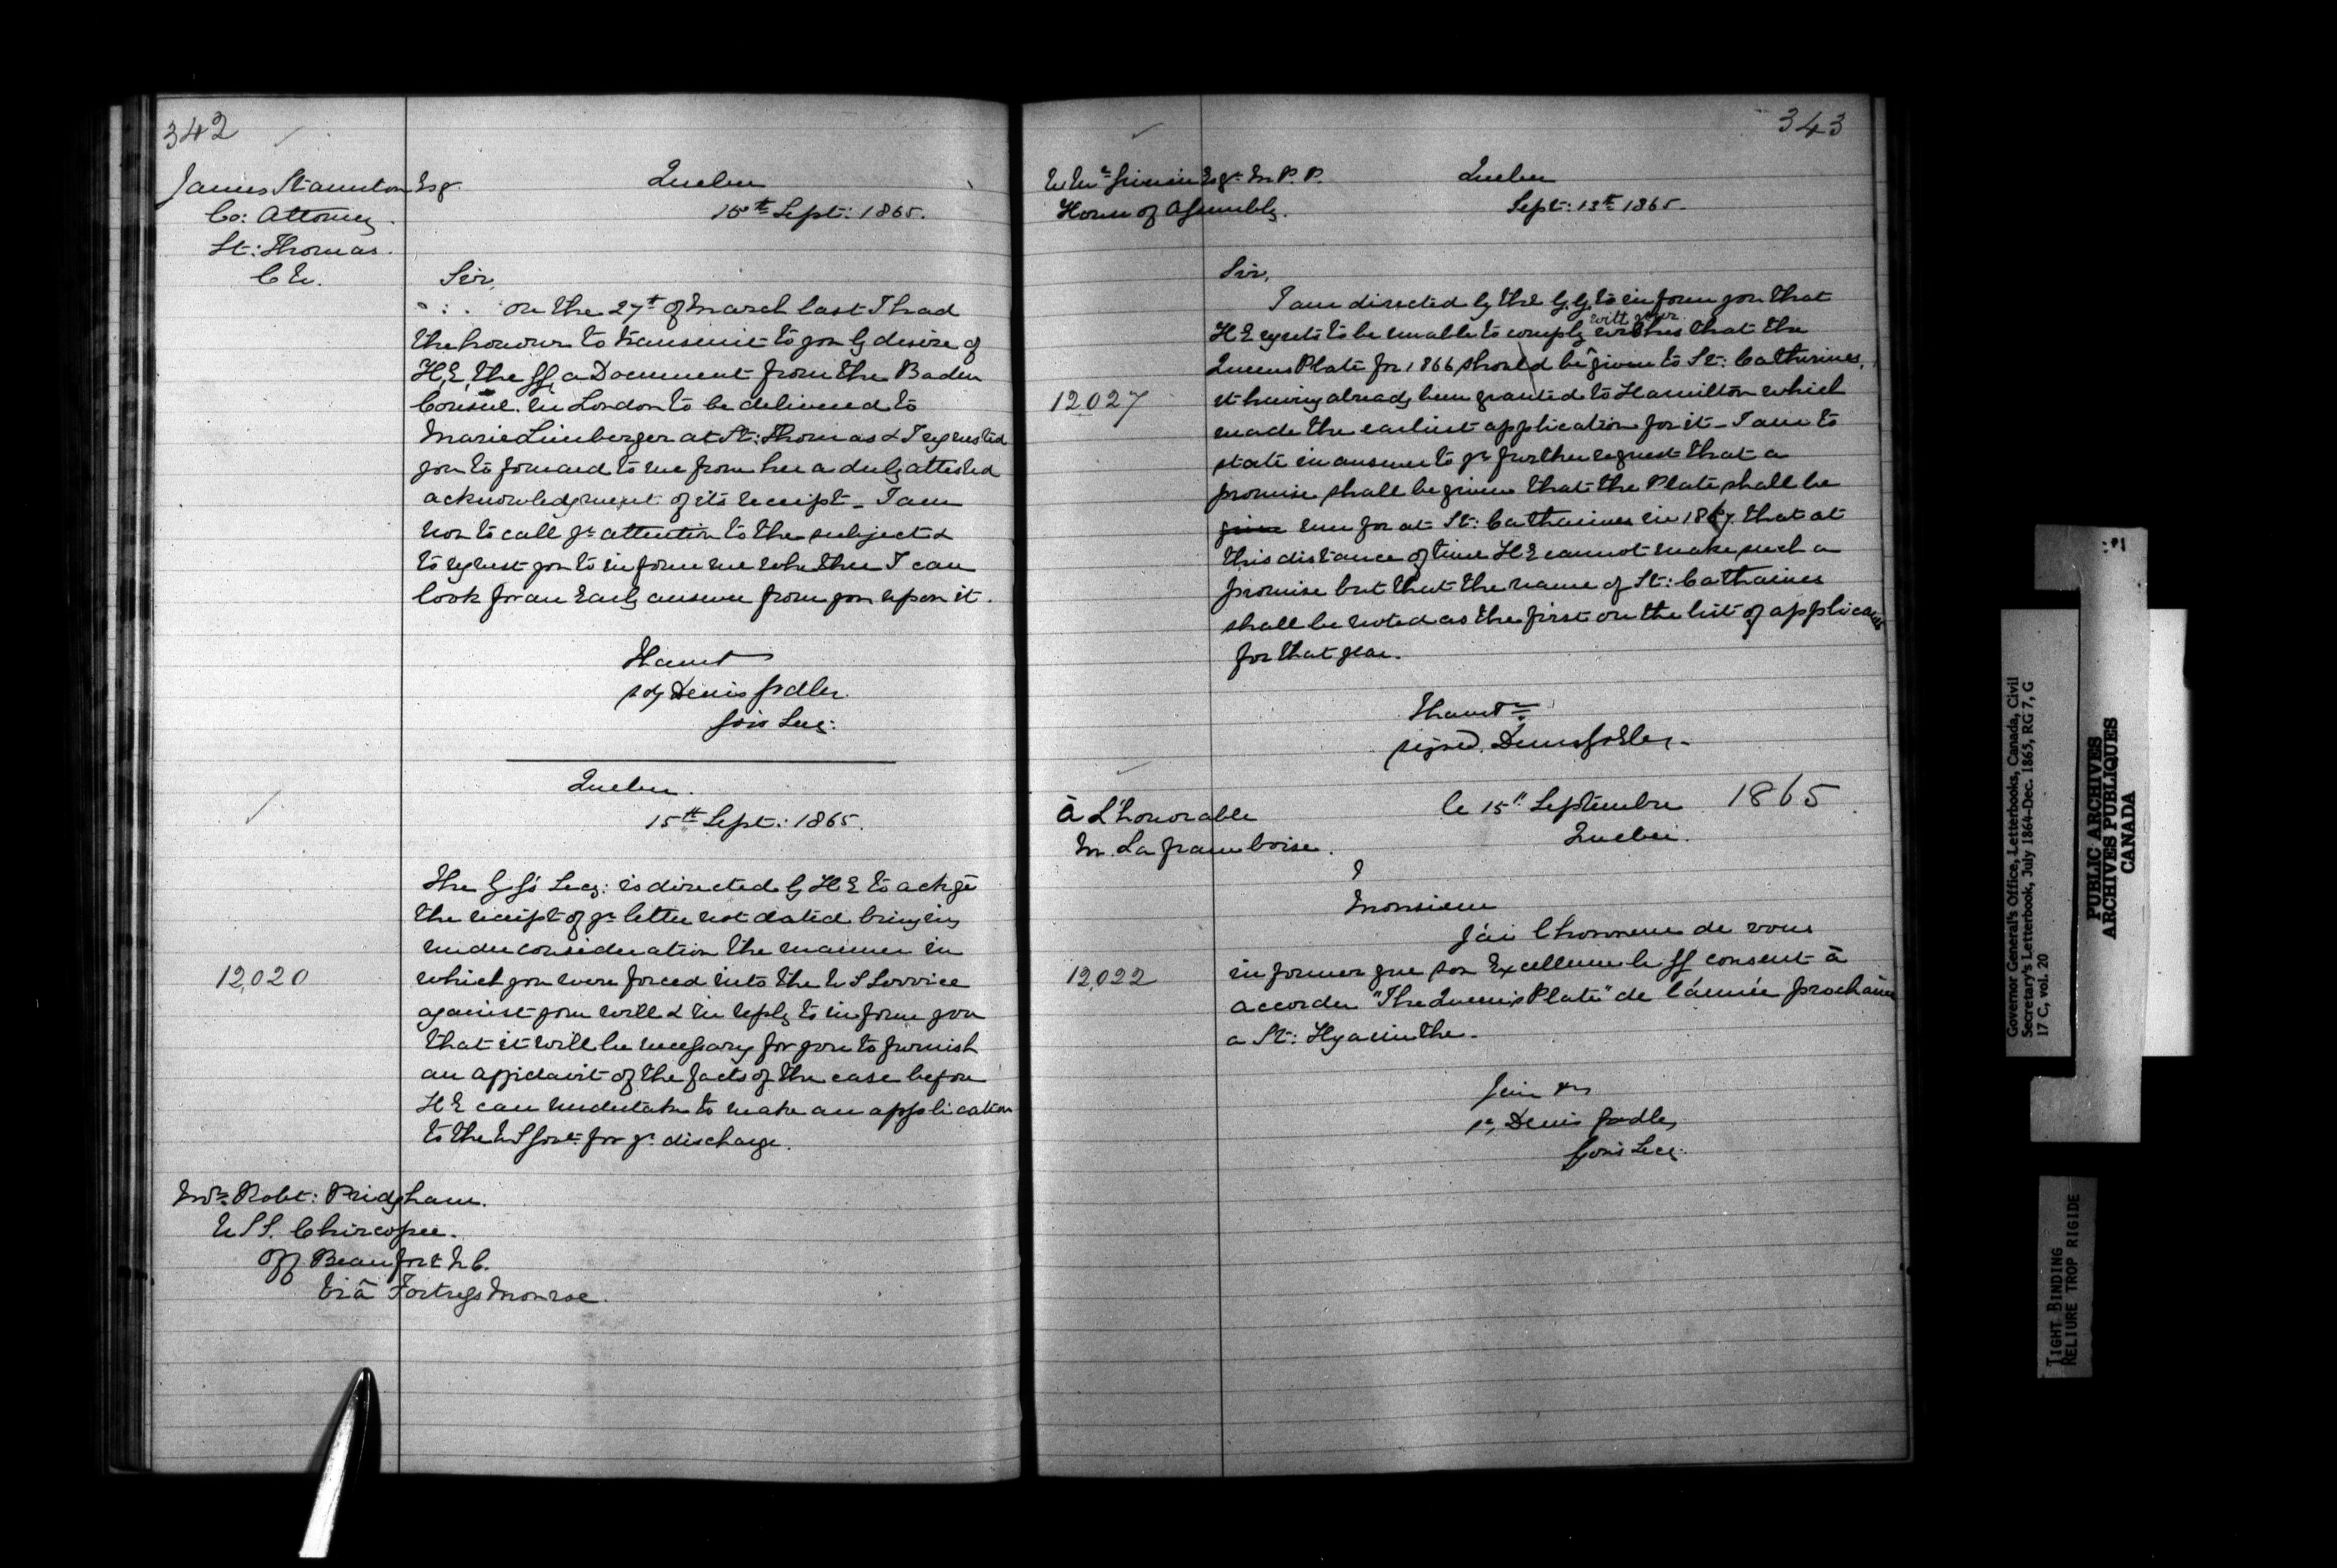 342
James Stanton Esqr.
Co: Attorney.
St: Thomas.
C W.
Quebec
15th Sept: 1865.
Sir,
On the 27th of March last I had
the honour to transmit to you by desire of
H.E. the GG, a Document from the Baden
Consul in London to be delivered to
Marie Limberger at St: Thomas & I requested
you to forward to me from her a duly attested
acknowledgment of its receipt - I am
now to call yr attention to the subject &
to request you to inform me whether I can
look for an Early answer from you upon it.
I have &
sdg Denis Godley.
Govs Secy:
Quebec.
15th Sept: 1865.
12,020
The G.G's Secy: is directed by H E to ackge
the receipt of yr letter not dated bringing
under consideration the manner in
which you were forced into the U S Service
against your will & in reply to inform you
that it will be necessary for you to furnish
an affidavit of the facts of the case before
H E can undertake to make an application
to the U S Govt for yr discharge.
Mr Robt: Pridgham.
U S S. Chircopee.
Off Beaufort N C.
Viâ Fortress Monroe.
343
Esqr M. P. P.
House of Assembly.
Quebec
Sept: 13th 1865.
Sir,
I am directed by the G.G. to inform you that
H E regrets to be unable to comply with your wishes that the
Queens Plate for 1866, should be given to St: Catherines,
12027
it having already been granted to Hamilton which
made the earliest application for it - I am to
state in answer to yr further request that a
promise shall be given that the Plate shall be
given run for at St: Catharines in 1867 that at
this distance of time H E cannot make such a
promise but that the name of St: Catharines
shall be noted as the first on the list of applicants
for that year.
I have &c
signed. Denis Godley -
À L'honorable
M. La framboise.
le 15" Septembre 1865
Quebec.
Monsieur
J'ai l'honneur de vous
12,022
informer que son Excellence le GG consent à
accorder "The Queen's Plate" de l'année prochaine
a St: Hyacinthe.
J'ai &c
sd, Denis Godley
Gov's Secy:
Governor General's Office, Letterbooks, Canada, Civil
Secretary's Letterbook, July 1864-Dec. 1865, RG 7, G
17 C, vol. 20
PUBLIC ARCHIVES
ARCHIVES PUBLIQUES
CANADA
TIGHT BINDING
RELIURE TROP RIGIDE